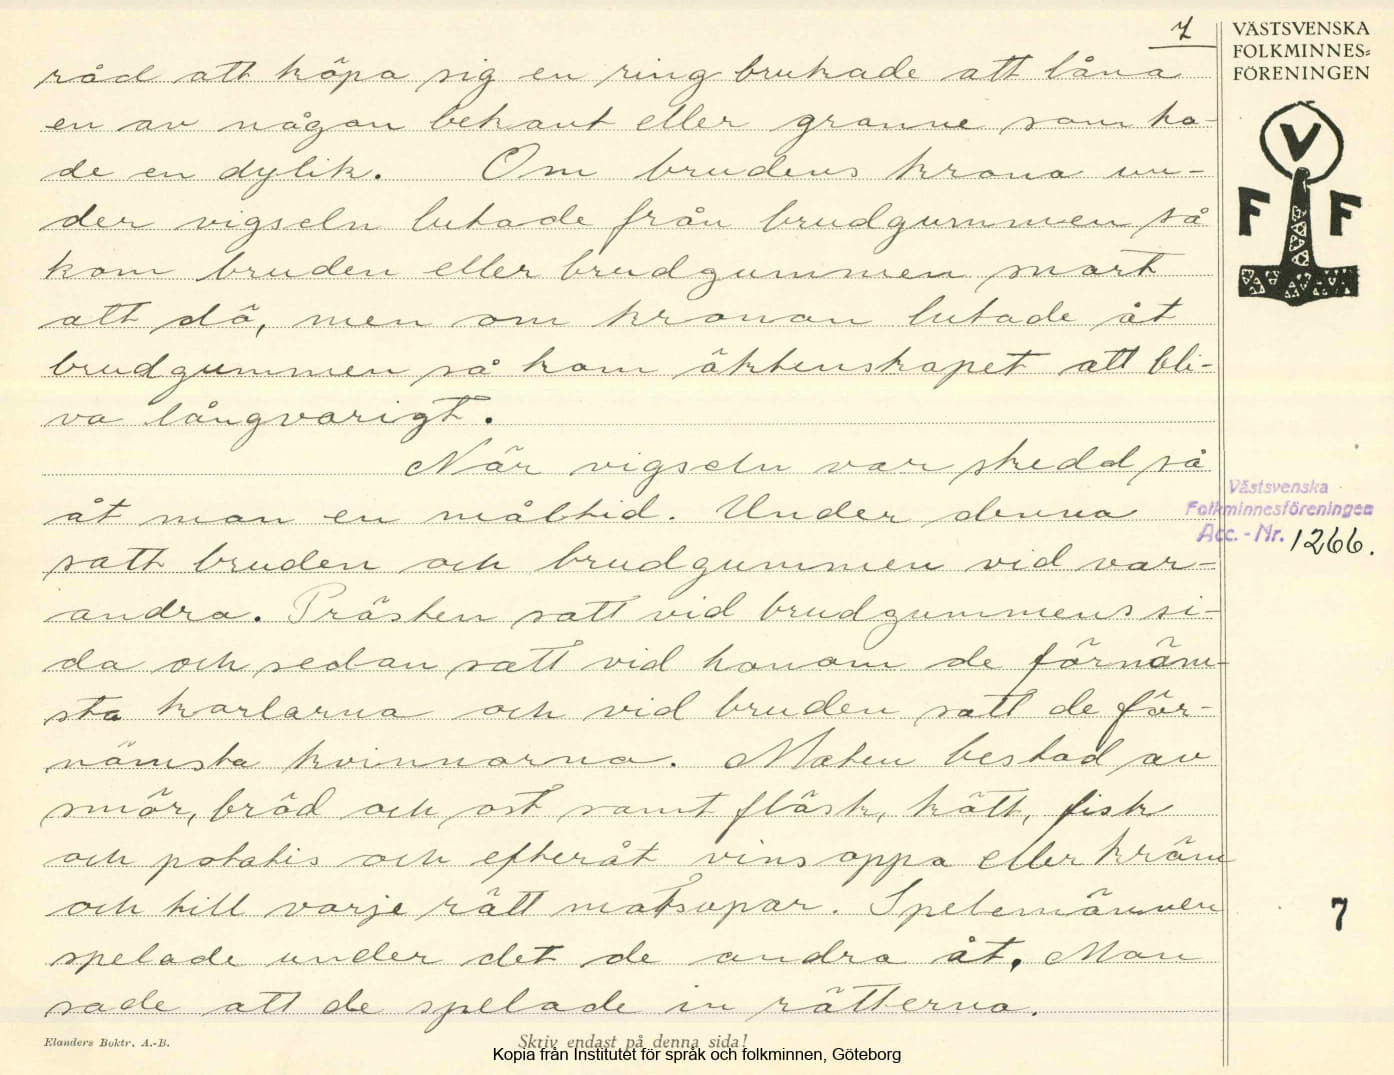 7
råd att köpa sig en ring brukade att låna
en av någon bekant eller granne som ha-
de en dylik. Om brudens krona un-
der vigseln lutade från brudgummen så
kom bruden eller brudgummen snart
att dö, men om kronan lutade åt
brudgummen så kom äktenskapet att bli-
va långvarigt.
När vigseln var skedd så
åt man en måltid. Under denna
satt bruden och brudgummen vid var-
andra. Prästen satt vid brudgummens si-
da och sedan satt vid honom de förnäm-
sta karlarna och vid bruden satt de för-
nämsta kvinnorna. Maten bestod av
smör, bröd och ost samt fläsk, kött, fisk
och potatis och efteråt vinsoppa eller kräm
och till varje rätt matsupar. Spelemännen
spelade under det de andra åt. Man
sade att de spelade in rätterna.
VÄSTSVENSKA
FOLKMINNES-
FÖRENINGEN
V
F F
Västsvenska
Folkminnesföreningen
Acc. - Nr. 1266.
7
Elanders Boktr. A.-B.
Skriv endast på denna sida!
Kopia från Institutet för språk och folkminnen, Göteborg